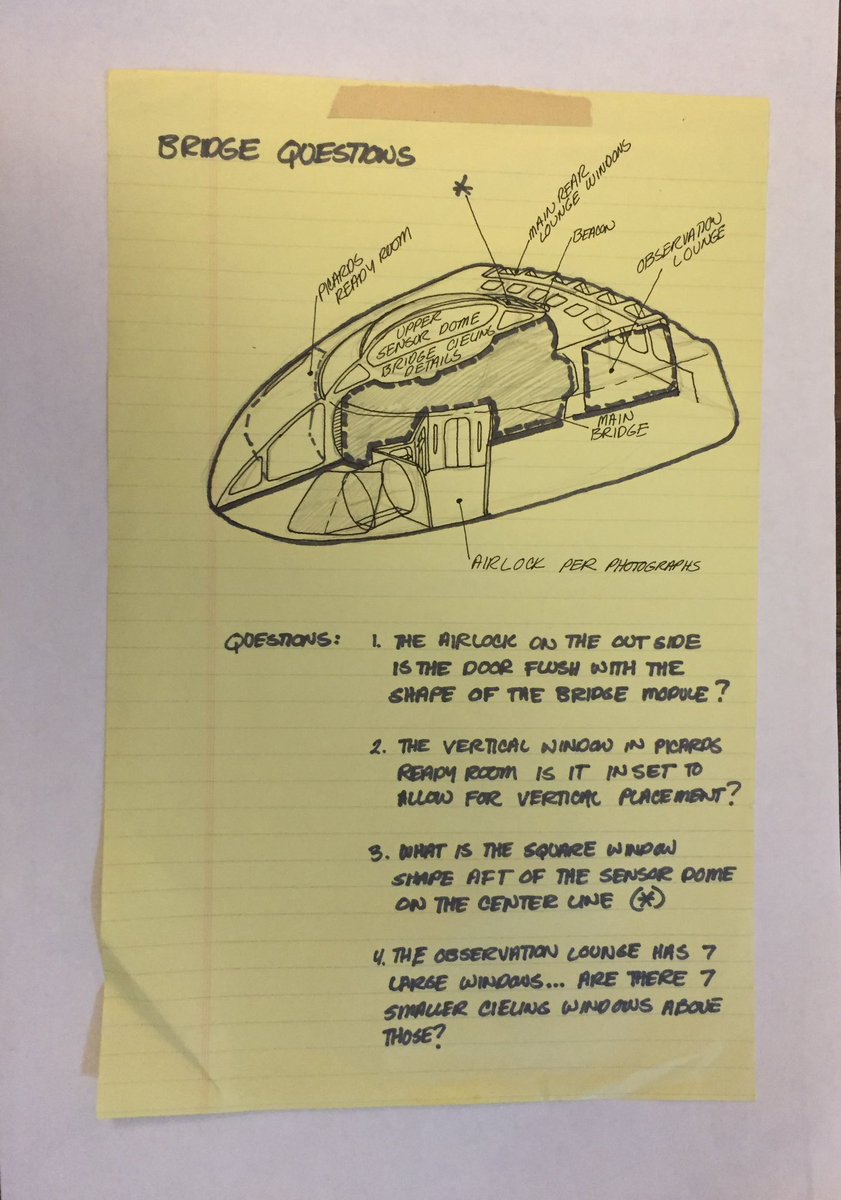 BRIDGE QUESTIONS
*
MAIN REAR
LOUNGE WINDOWS
BEACON
OBSERVATION
LOUNGE
PICARDS
READY ROOM
UPPER
SENSOR DOME
BRIDGE CIELING
DETAILS
MAIN
BRIDGE
AIRLOCK PER PHOTOGRAPHS
QUESTIONS: 1. THE AIRLOCK ON THE OUT SIDE
IS THE DOOR FLUSH WITH THE
SHAPE OF THE BRIDGE MODULE?
2. THE VERTICAL WINDOW IN PICARDS
READY ROOM IS IT IN SET TO
ALLOW FOR VERTICAL PLACEMENT?
3. WHAT IS THE SQUARE WINDOW
SHAPE AFT OF THE SENSOR DOME
ON THE CENTER LINE (*)
4. THE OBSERVATION LOUNGE HAS 7
LARGE WINDOWS... ARE THERE 7
SMALLER CIELING WINDOWS ABOVE
THOSE?